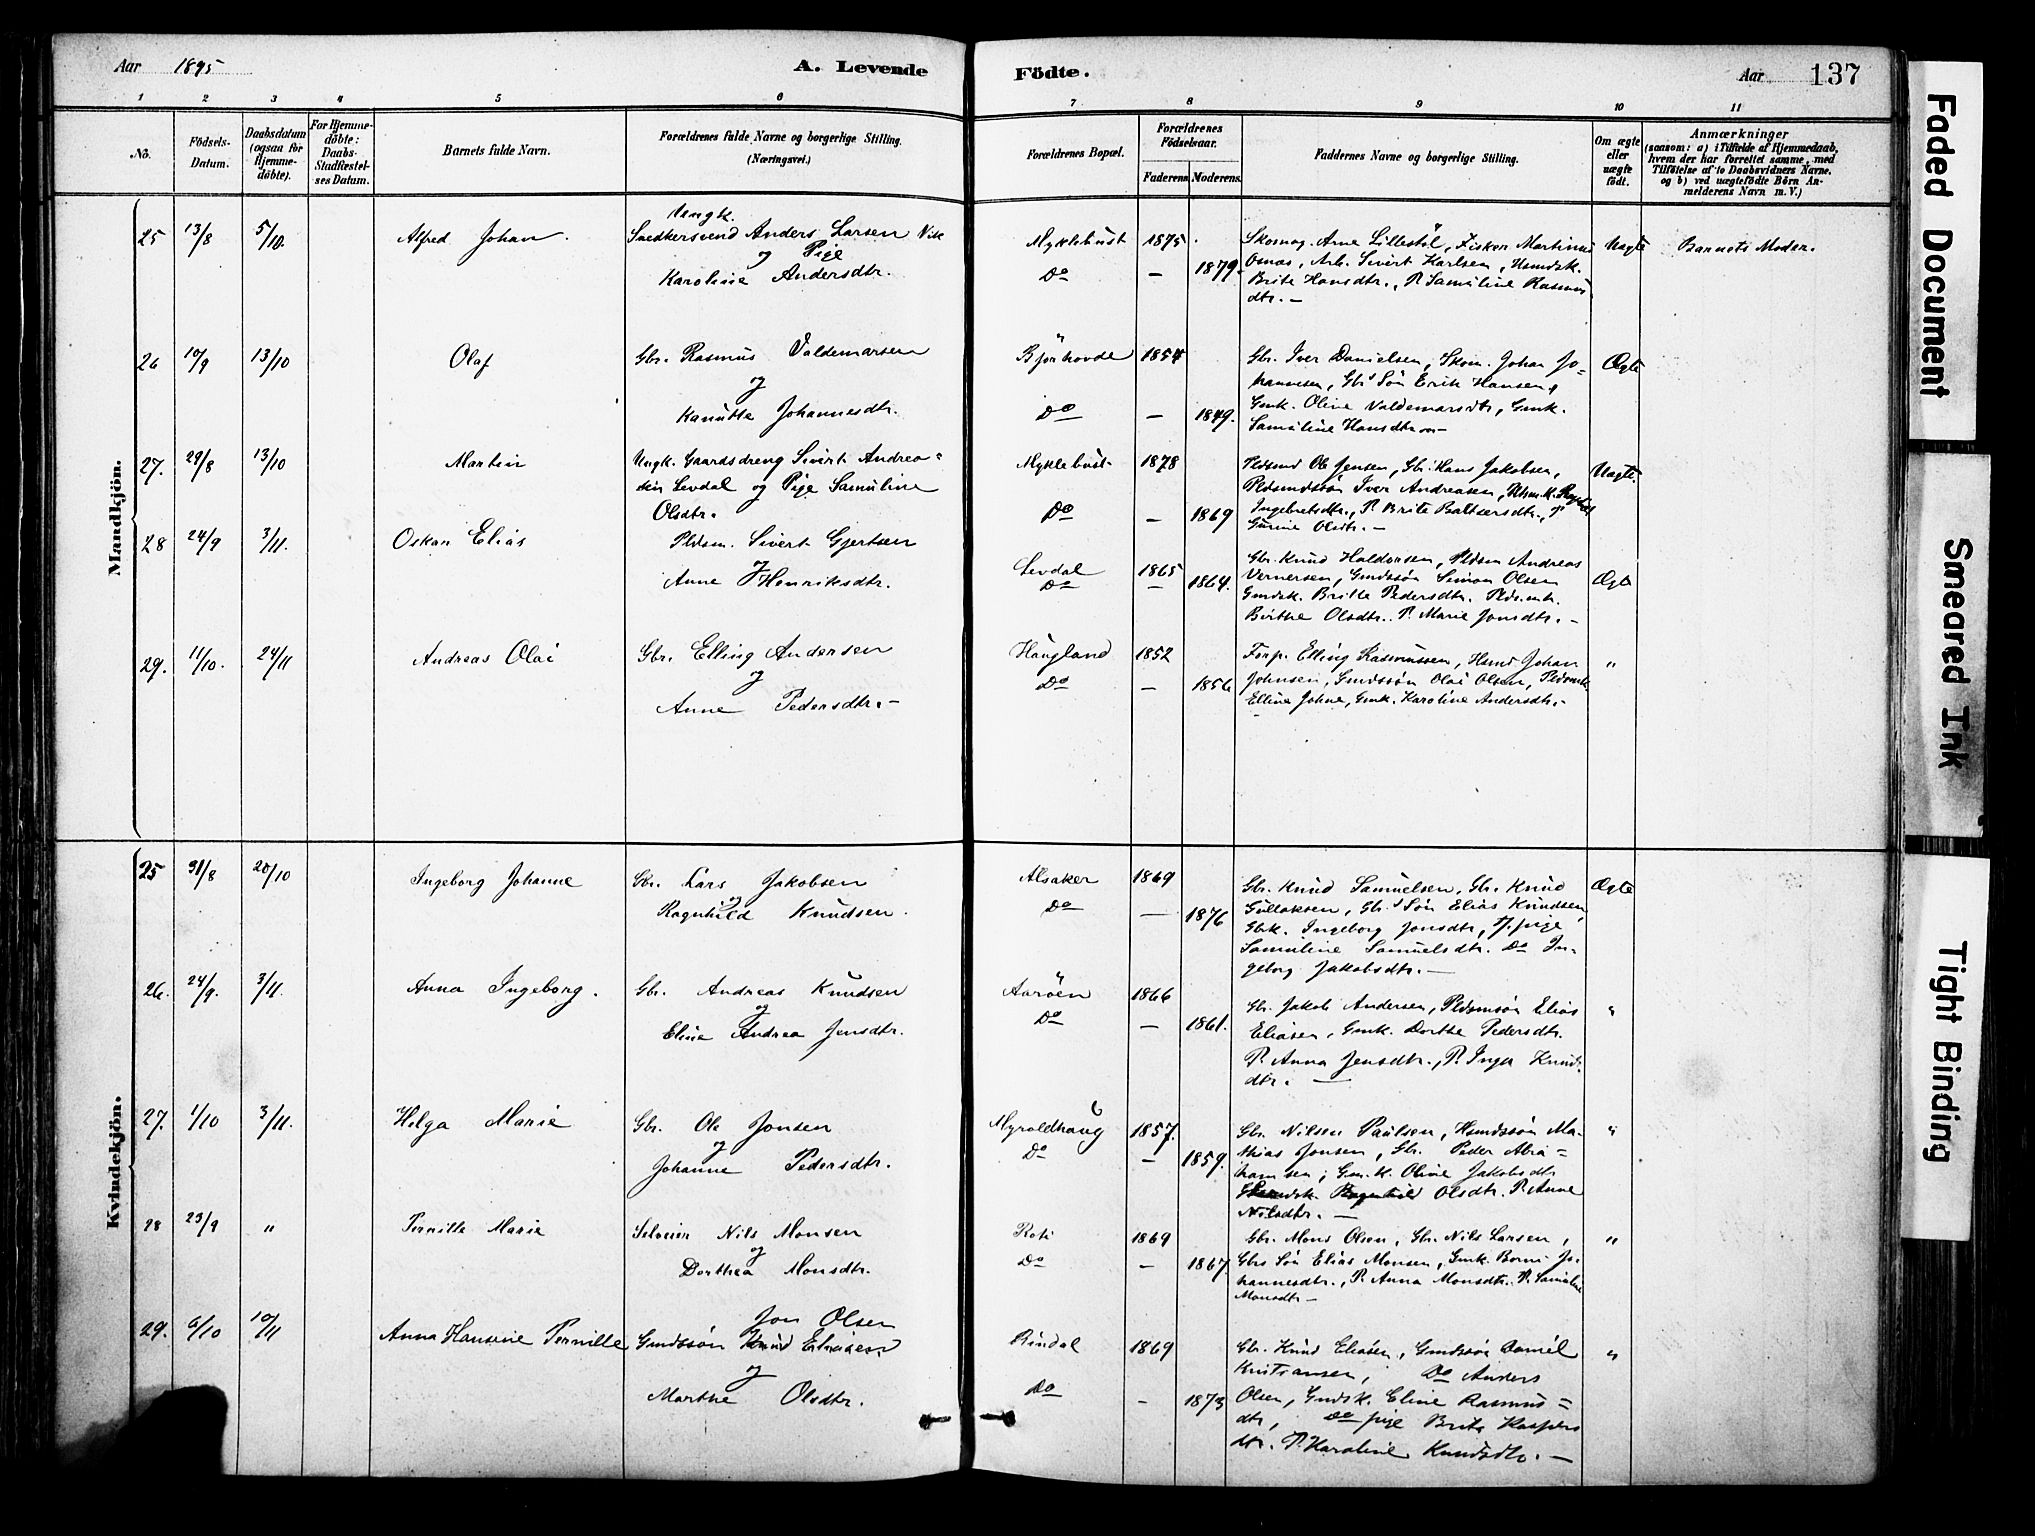 Aar 1895
A. Levende
Födte.
Aar 137
1 2 3 4 5 6 7 8 9 10 11
No.
Födsels-
Datum.
Daabsdatum
(ogsaa för
Hjemme-
döbte).
For Hjemme-
döbte:
Daabs-
Stadfæstel-
ses Datum.
Barnets fulde Navn.
Forældrenes fulde Navne og borgerlige Stilling.
(Næringsvei.)
Forældrenes Bopæl.
Forældrenes
Födselsaar.
Faderens Moderens.
Faddernes Navne og borgerlige Stilling.
Om ægte
eller
uægte
födt.
Anmærkninger
(saasom: a) i Tilfælde af Hjemmedaab,
hvem der har forrettet samme, med
Tilföielse af to Daabsvidners Navne.
og b) ved uægtefödte Börn An-
melderens Navn m. V.)
Mandkjön.
25 13/8 5/10. Alfred Johan.
Ungk.
Snedkersvend Anders Larsen Vik
og Pige
Karoline Andersdtr.
Myklebust 1875
Do — 1879.
Skomag. Arne Lillestöl, Fisker Martinus
Osnæs, Arb. Sivert Karlsen, Hsmdsk.
Brite Hansdtr., P. Samuline Rasmus
dtr. —
Uægte
Barnets Moder.
26 10/9 13/10 Olaf
Gbr. Rasmus Valdemarsen
og
Kanutte Johannesdtr.
Björkovde 1854
Do — 1849.
Gbr. Iver Danielsen, Skom. Johan Jo=
hannesen, Gbs Sön Erik Hansen,
Gmk. Oline Valdemarsdtr, Gmk.
Samuline Hansdtr —
Ægte
27. 29/8 13/10 Martin
Ungk. Gaardsdreng Sivert Andrea=
sen Levdal og Pige Samuline
Olsdtr.
Myklebust 1878
Do — 1869
Pldsmd Ole Jensen, Gbr. Hans Jakobsen,
Pldsmdssön Iver Andreasen,
Ingebretsdtr., P. Brite Baltsersdtr., P
Gurine Olsdtr. —
Uægte.
28 24/9 3/11. Oskar Elias
Pldsm. Sivert Gjertsen
og
Anne Henriksdtr.
Levdal 1865
Do — 1864.
Gbr. Knud Haldorsen, Pldsm Andreas
Vernersen, Gmdssön Simon Olsen
Gmdsk. Britte Pedersdtr. Pldsmk.
Birthe Olsdtr. P. Marie Jonsdtr. —
Ægte
29. 11/10. 24/11 Andreas Olai
Gbr. Elling Andersen
og
Anne Pedersdtr. —
Haugland 1852
Do — 1856
Forp. Elling Rasmussen, Hsmd Johan
Johnsen, Gmdssön Olai Olsen, Pldsmk
Elline Johne, Gmk. Karoline Andersdtr. —
"
Kvindekjön.
25 31/8 20/10 Ingeborg Johanne
Gbr. Lars Jakobsen
og
Ragnhild Knudsen.
Alsaker 1869
Do — 1876
Gbr. Knud Samuelsen, Gbr. Knud
Gullaksen, Gbs Sön Elias Knudsen,
Gbk. Ingeborg Jonsdtr, Tj. pige
Samuline Samuelsdtr. Do In-
geborg Jakobsdtr. —
Ægte
26. 24/9. 3/11. Anna Ingeborg.
Gbr. Andreas Knudsen
og
Eline Andrea Jensdtr.
Aaröen 1866
Do — 1861.
Gbr. Jakob Andersen, Pldsmsön Elias
Eliasen, Gmk. Dorthe Pedersdtr.
P. Anna Jensdtr., P. Inga Knuds
dtr. —
"
27. 1/10 3/11. Helga Marie
Gbr. Ole Jonsen
og
Johanne Pedersdtr.
Myroldhaug 1857.
Do — 1859.
Gbr. Nilsen Paulsen, Hsmdssön Ma-
thias Jonsen, Gbr. Peder Abra=
hamsen, Gm.k. Oline Jakobsdtr
Ragnhild Olsdtr. P. Anne
Nilsdtr. —
"
28 23/9 " Pernille Marie
Selveier Nils Monsen
og
Dorthea Monsdtr.
Roti 1869
Do — 1867
Gbr. Mons Olsen, Gbr. Nils Larsen,
Gbrs Sön Elias Monsen, Gmk. Berni Jo-
hannesdtr., P. Anna Monsdtr. P. Samuline
Monsdtr —
"
29. 6/10 10/11 Anna Hansine Pernille
Jon Olsen
Gmdssön Knud Eliasen
og
Marthe Olsdtr.
Rindal 1869
Do - 1873
Gbr. Knud Eliasen, Gmdssön Daniel
Kristiansen, Do Anders
Olsen, Gmdsk. Eline Rasmus=
dtr, Do pige Brite Kaspers
dtr. P. Karoline Knudsdtr. —
"
Faded Document
Smeared Ink
Tight Binding